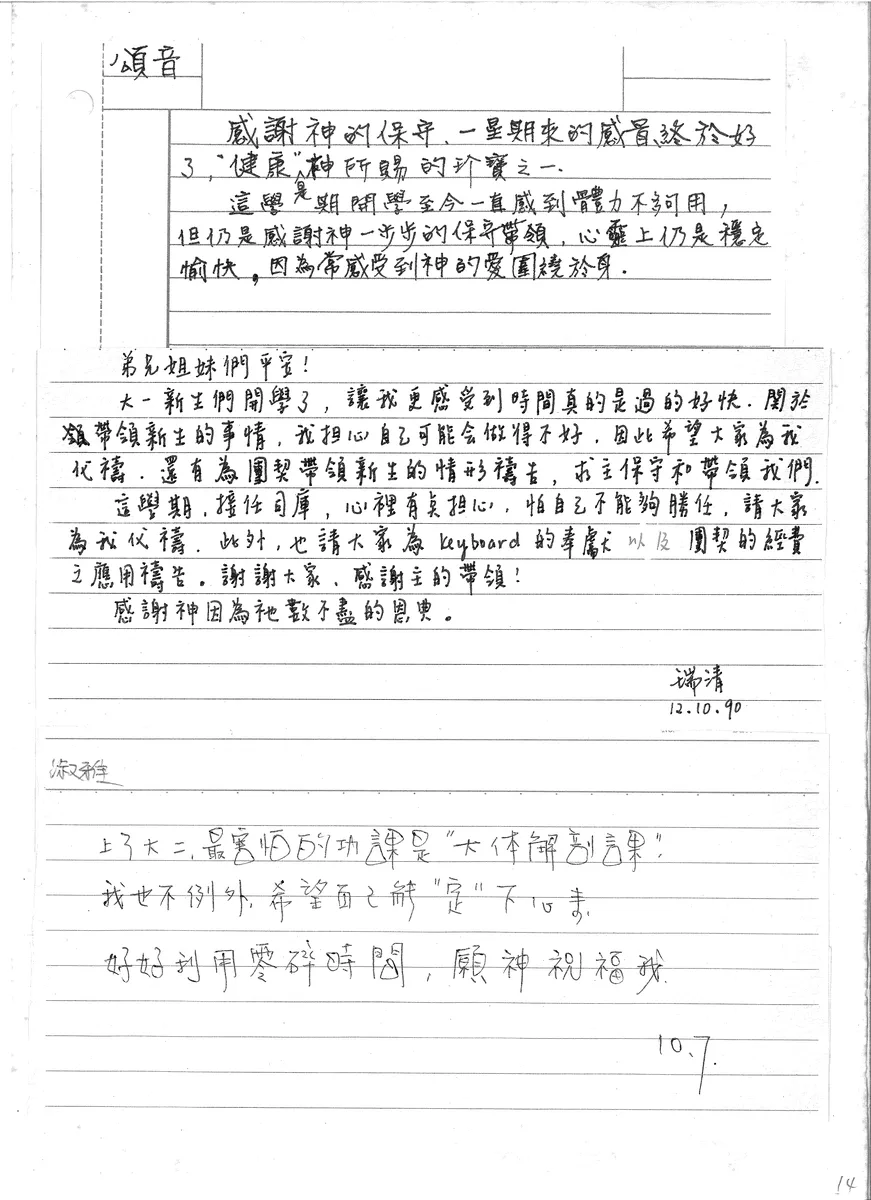 頌音
感謝神的保守、一星期來的感冒終於好
了，"健康"是神所賜的珍寶之一.
這學期開學至今一直感到體力不夠用，
但仍是感謝神一步步的保守帶領，心靈上仍是穩定
愉快。因為常感受到神的愛圍繞於身.
弟兄姐妹們平安！
大一新生們開學了，讓我更感受到時間真的是過的好快. 關於
帶領新生的事情，我担心自己可能会做得不好，因此希望大家為我
代禱. 還有為團契帶領新生的情形禱告，求主保守和帶領我們.
這學期，接任司庫，心裡有点担心，怕自己不能夠勝任，請大家
為我代禱. 此外，也請大家為 keyboard 的奉獻以及 團契的經費
之應用禱告。謝謝大家、感謝主的帶領！
感謝神因為祂數不盡的恩典。
瑞清
12.10.90
淑雅
上了大二，最害怕的功課是"大体解剖課".
我也不例外，希望自己能"定"下心來，
好好利用零碎時間，願神祝福我.
10.7.
14